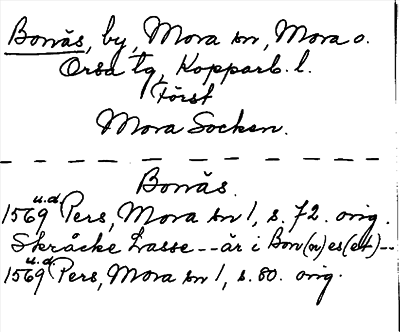 Bonäs, by, Mora sn, Mora o.
Orsa tg, Kopparb. l.
Först
Mora Socken.
Bonäs.
1569 u.d. Pers, Mora sn 1, s. 72. orig.
Skråcke Lasse -- är i Bon(n)es(et)--
1569 u.d. Pers, Mora sn 1, s. 80. orig.